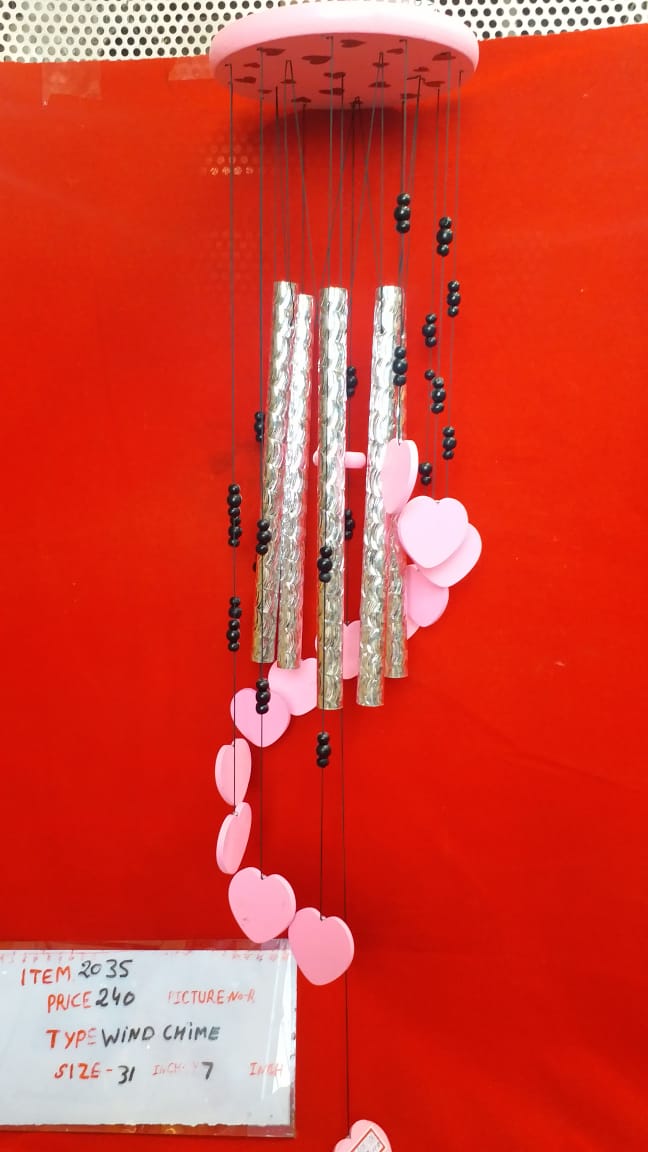 ITEM 2035
PRICE 240 PICTURE No-R
TYPE WIND CHIME
SIZE - 31 INCH 7 INCH